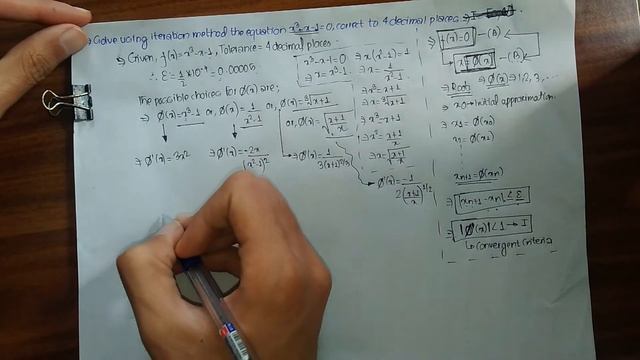 ⇒ Solve using iteration method the equation x³-x-1=0, correct to 4 decimal places.
⇒ Given, f(x)=x³-x-1, Tolerance = 4 decimal places
∴ ε = 1/2 × 10⁻⁴ = 0.00005
The possible choices for ø(x) are;
⇒ ø(x)=x³-1 or, ø(x)=1/(x²-1) or, ø(x)=∛(x+1)
or, ø(x)=√((x+1)/x)
⇒ ø'(x)=3x² ⇒ ø'(x)=-2x/(x²-1)²
⇒ ø'(x)=1/(3(x+1)^(2/3))
⇒ ø'(x)=-1/(2((x+1)/x)^(1/2))
x³-x-1=0
⇒ x=x³-1
⇒ x(x²-1)=1
⇒ x=1/(x²-1)
⇒ x³=x+1
⇒ x=∛(x+1)
⇒ x³=x+1
⇒ x²=(x+1)/x
⇒ x=√((x+1)/x)
⇒ f(x)=0 -(A)
x=ø(x) -(B)
⇒ Root: ⇒ ø(x)⇒1,2,3,...
⇒ x0→initial approximation.
⇒ x1=ø(x0)
x2=ø(x1)
xn+1=ø(xn)
⇒ |xn+1-xn|≤ε
⇒ |ø'(x)|<1→I
↳convergent criteria